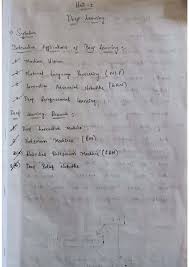 Unit-2
Deep Learning
Syllabus
Interactive Applications of Deep Learning:
Machine Vision
Natural Language Processing (NLP)
Generative Adversarial Networks (GAN)
Deep Reinforcement Learning
Deep Learning Research:
Deep Networks
Boltzmann Machines (BM)
Restricted Boltzmann Machines (RBM)
Deep Belief Networks